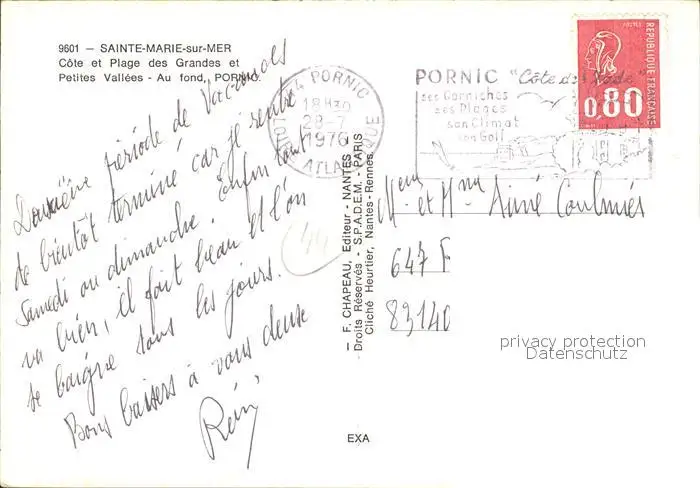 9601 — SAINTE-MARIE-sur-MER
Côte et Plage des Grandes et
Petites Vallées - Au fond, PORNIC.
Deuxième période de Vacances
de bientôt terminé car je rentre
Samedi ou dimanche. Enfin tout
va bien, il fait beau et l'on
se baigne tous les jours.
Bons baisers à vous deux
Rémy
44
44 PORNIC
18H30
28-7
1976
LOIRE ATLANTIQUE
PORNIC "Côte de Jade"
ses Corniches
ses Plages
son Climat
son Golf
REPUBLIQUE FRANÇAISE
0,80
— F. CHAPEAU, Editeur - NANTES
Droits Réservés - S.P.A.D.E.M. - PARIS
Cliché Heurtier, Nantes-Rennes.
et Mme Aimé Coulmiés
647
83140
privacy protection
Datenschutz
EXA